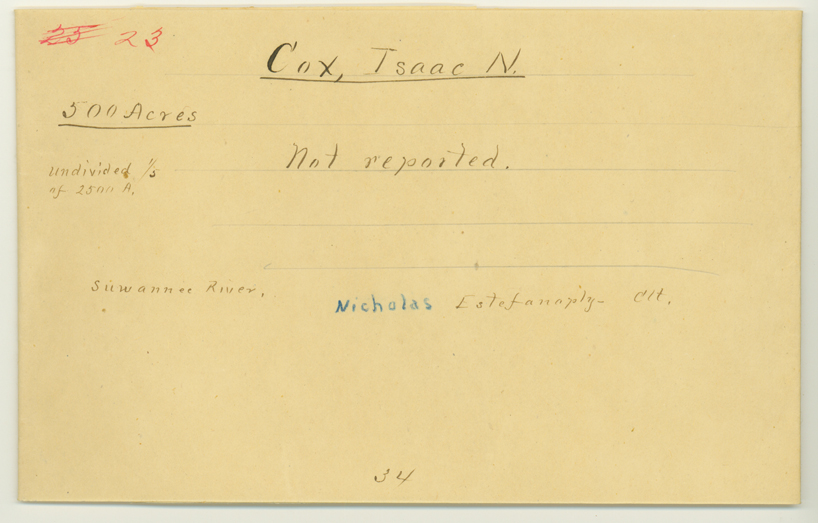 23 23
Cox, Isaac N.
500 Acres
Undivided 1/5
of 2500 A.
Not reported.
Suwannee River,
Nicholas Estefanoply- Clt.
34